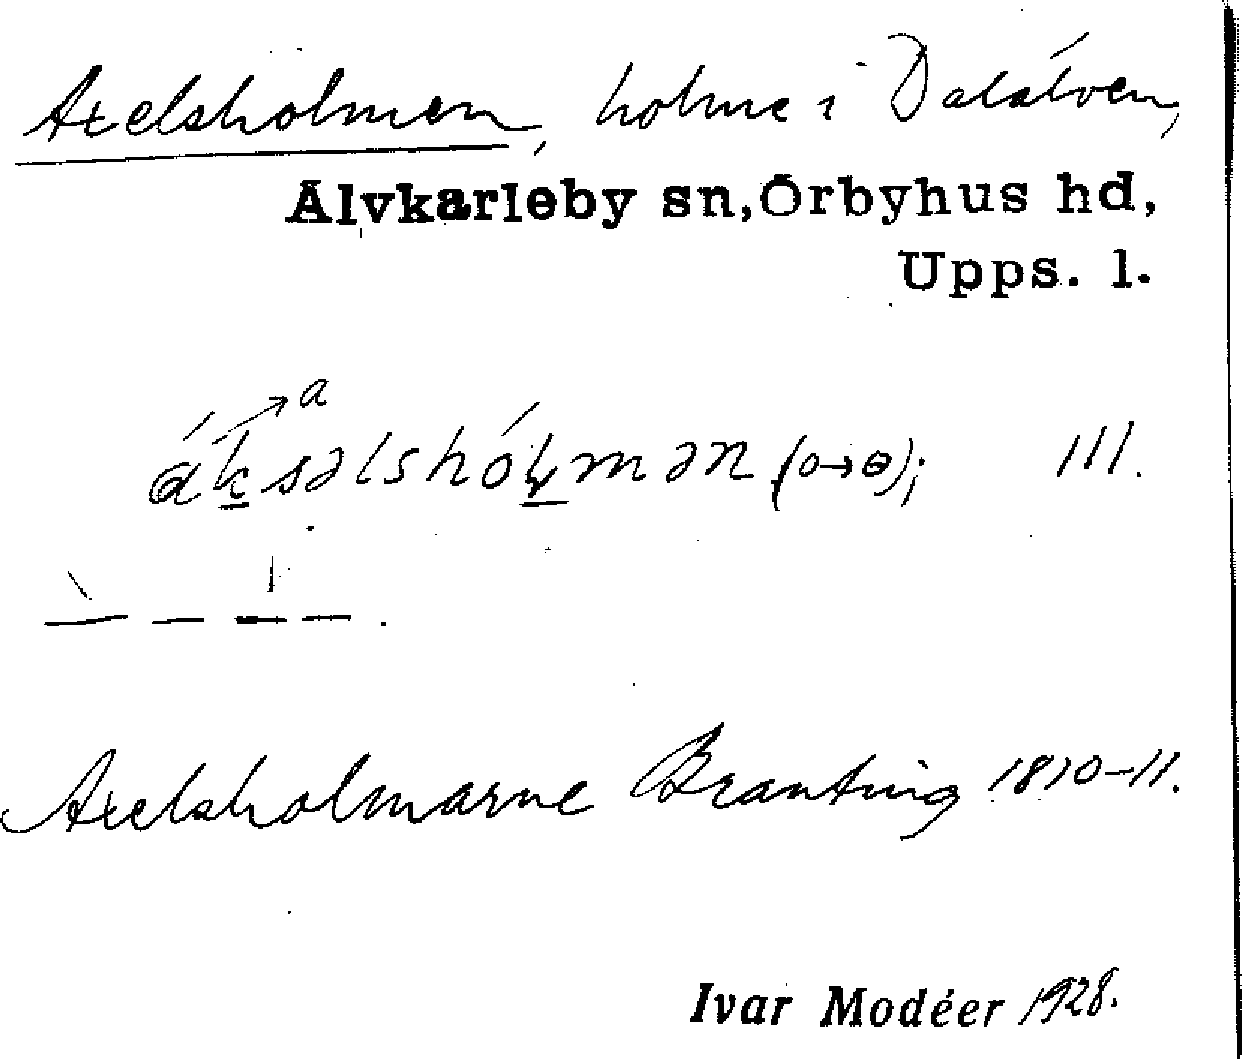 Axelsholmen, holme i Dalälven,
Älvkarleby sn, Örbyhus hd,
Upps. l.
a
áksəlshóḷmən (o→ɵ); III.
Axelsholmarne Branting 1810-11.
Ivar Modéer 1928.